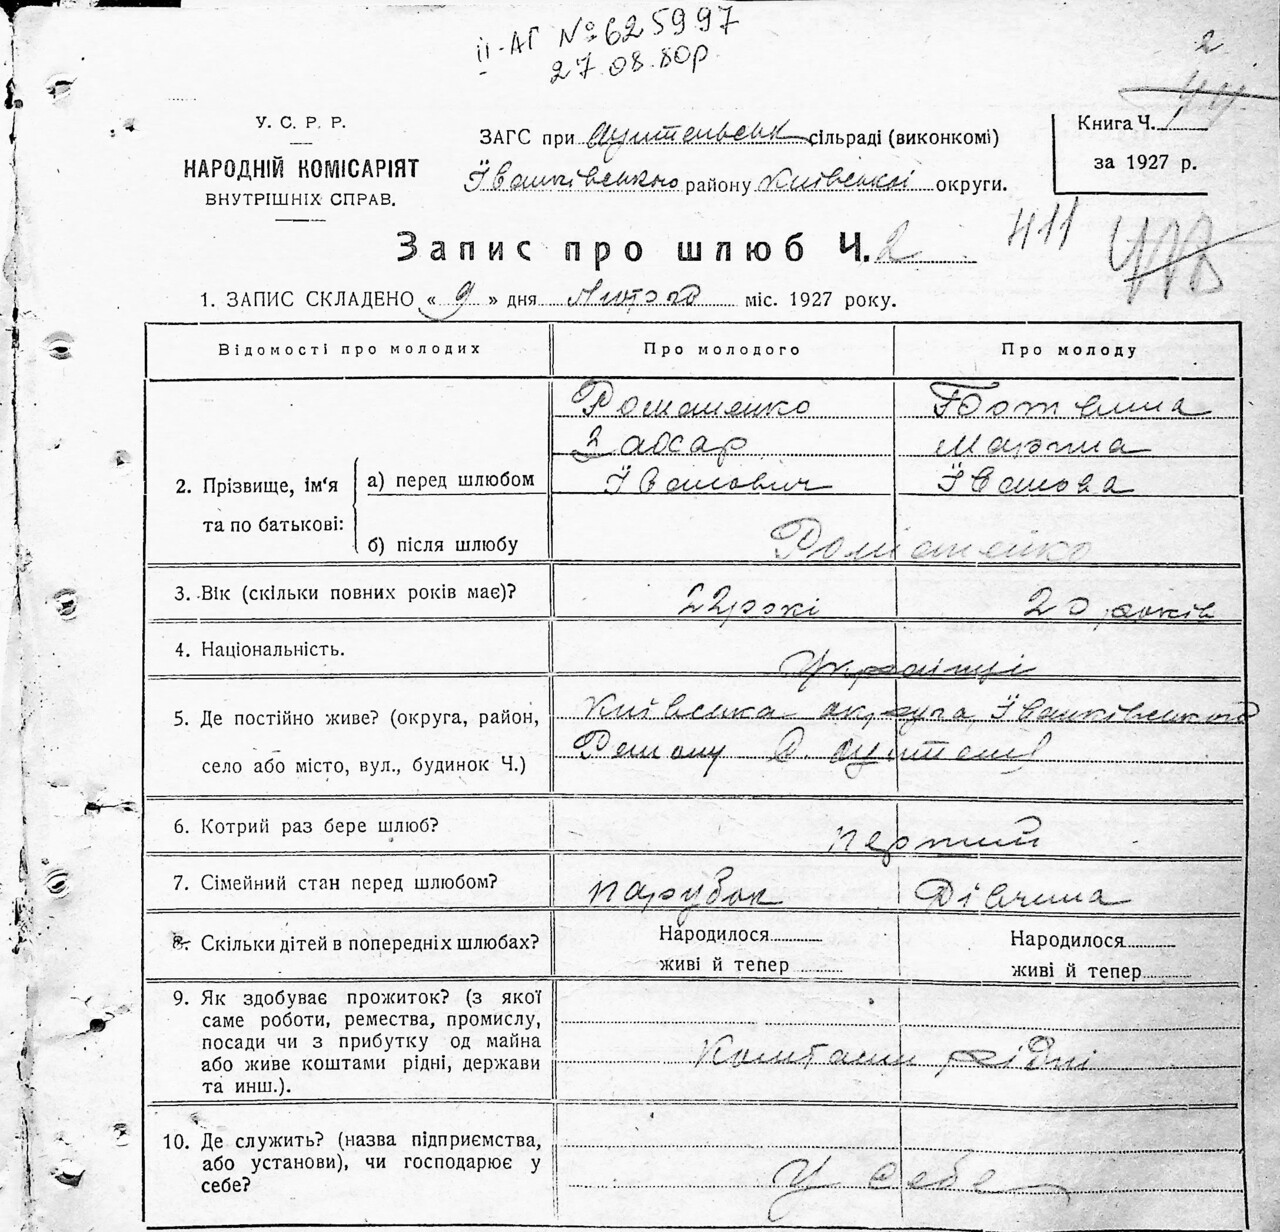 ІІ-АГ № 625997
27.08.80р
2
У. С. Р. Р.
НАРОДНІЙ КОМІСАРІЯТ
ВНУТРІШНІХ СПРАВ.
ЗАГС при сільраді (виконкомі)
Іванківського району Київської округи.
Книга Ч. 1
за 1927 р.
411
Запис про шлюб Ч. 2
1. ЗАПИС СКЛАДЕНО « 9 » дня Лютого міс. 1927 року.
Відомості про молодих Про молодого Про молоду
2. Прізвище, ім'я та по батькові:
а) перед шлюбом
Романенко
Захар Марина
Іванович Іванова
б) після шлюбу Романенко
3. Вік (скільки повних років має)? 22 рокі 20 років
4. Національність. Українці
5. Де постійно живе? (округа, район, село або місто, вул., будинок Ч.)
Київська округа Іванківського
Району
6. Котрий раз бере шлюб? перший
7. Сімейний стан перед шлюбом? парубок Дівчина
8. Скільки дітей в попередніх шлюбах? Народилося Народилося
живі й тепер живі й тепер
9. Як здобуває прожиток? (з якої
саме роботи, ремества, промислу,
посади чи з прибутку од майна
або живе коштами рідні, держави
та инш.).
Коштами рідні
10. Де служить? (назва підприємства,
або установи), чи господарює у
себе?
У себе